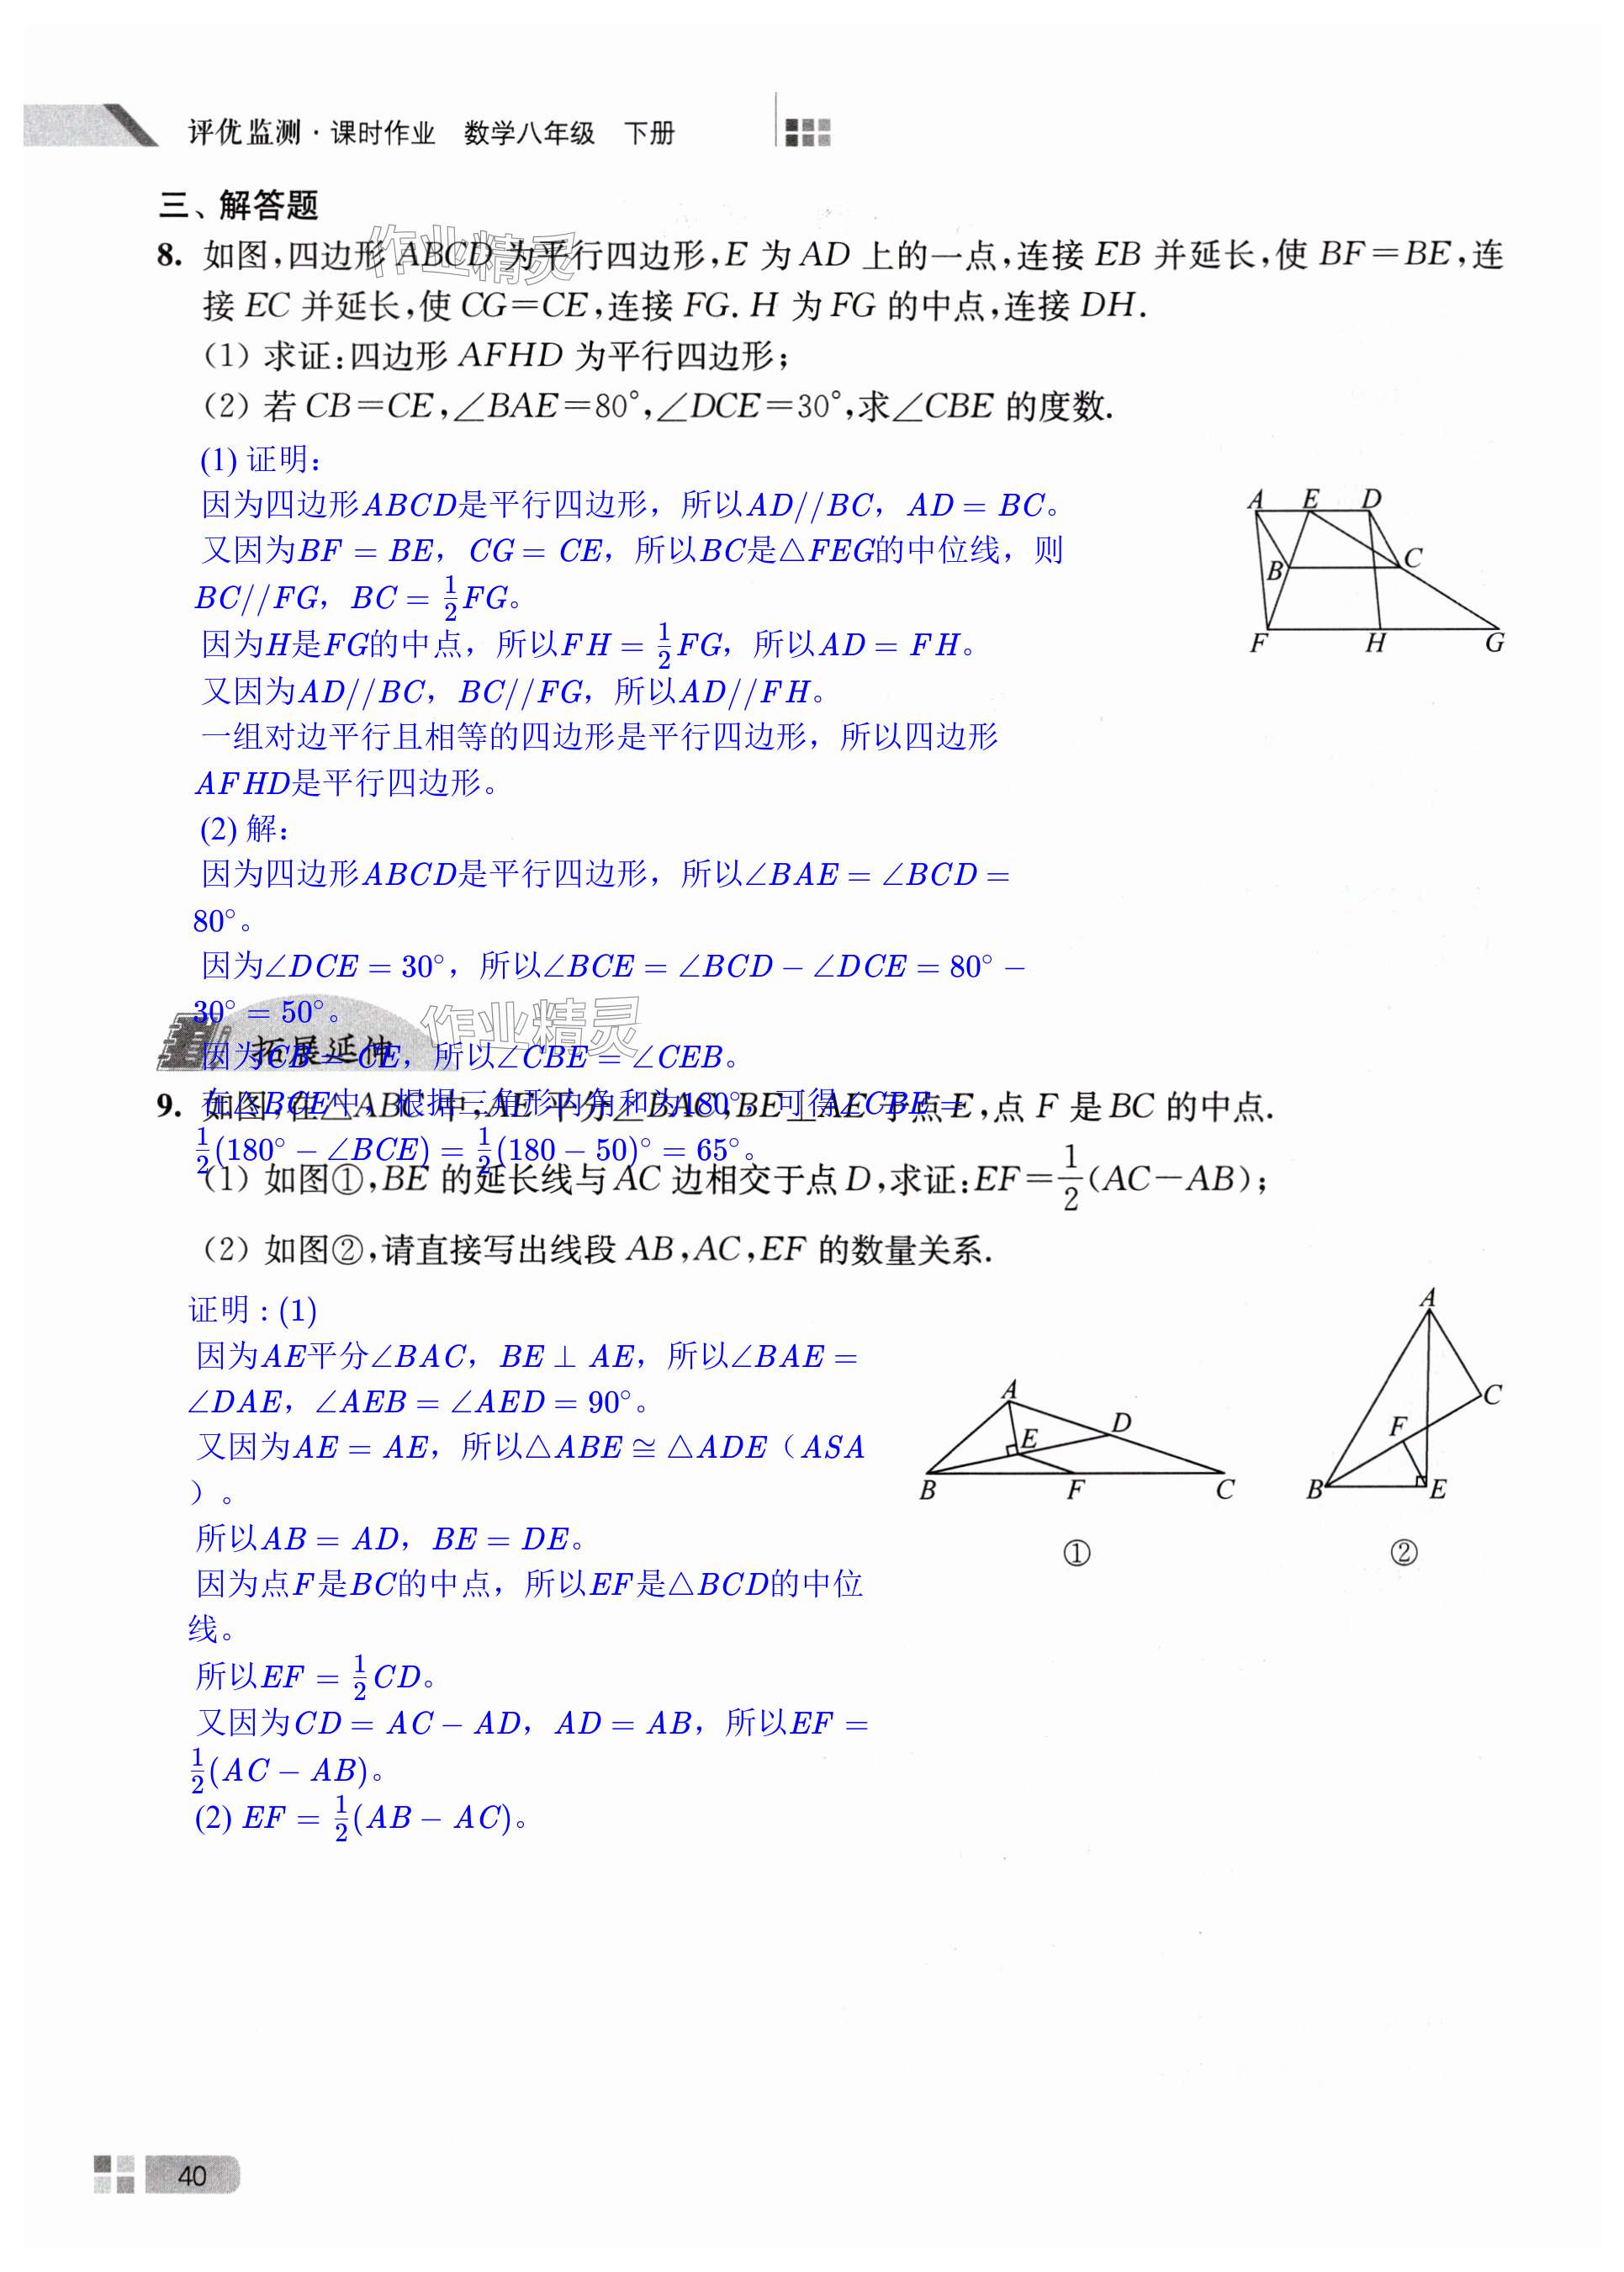 评优监测·课时作业 数学八年级 下册
三、解答题
8. 如图,四边形 ABCD 为平行四边形,E 为 AD 上的一点,连接 EB 并延长,使 BF=BE,连
接 EC 并延长,使 CG=CE,连接 FG. H 为 FG 的中点,连接 DH.
(1) 求证:四边形 AFHD 为平行四边形;
(2) 若 CB=CE,∠BAE=80°,∠DCE=30°,求∠CBE 的度数.
(1) 证明：
因为四边形ABCD是平行四边形，所以AD//BC，AD = BC。
又因为BF = BE，CG = CE，所以BC是△FEG的中位线，则
BC//FG，BC = 1/2 FG。
因为H是FG的中点，所以FH = 1/2 FG，所以AD = FH。
又因为AD//BC，BC//FG，所以AD//FH。
一组对边平行且相等的四边形是平行四边形，所以四边形
AFHD是平行四边形。
(2) 解：
因为四边形ABCD是平行四边形，所以∠BAE = ∠BCD =
80°。
因为∠DCE = 30°，所以∠BCE = ∠BCD − ∠DCE = 80° −
30° = 50°。
A E D
B C
F H G
作业精灵
拓展延伸
作业精灵
因为CB = CE，所以∠CBE = ∠CEB。
在△BCE中，根据三角形内角和为180°，可得∠CBE =
1/2(180° − ∠BCE) = 1/2(180 − 50)° = 65°。
9. 如图,在△ABC 中,AE 平分∠BAC,BE⊥AE 于点 E,点 F 是 BC 的中点.
(1) 如图①,BE 的延长线与 AC 边相交于点 D,求证:EF=1/2(AC−AB);
(2) 如图②,请直接写出线段 AB,AC,EF 的数量关系.
证明：(1)
因为AE平分∠BAC，BE ⊥ AE，所以∠BAE =
∠DAE，∠AEB = ∠AED = 90°。
又因为AE = AE，所以△ABE ≅ △ADE（ASA
）。
所以AB = AD，BE = DE。
因为点F是BC的中点，所以EF是△BCD的中位
线。
所以EF = 1/2 CD。
又因为CD = AC − AD，AD = AB，所以EF =
1/2(AC − AB)。
(2) EF = 1/2(AB − AC)。
A
D
E
B F C
①
A
C
F
B E
②
40